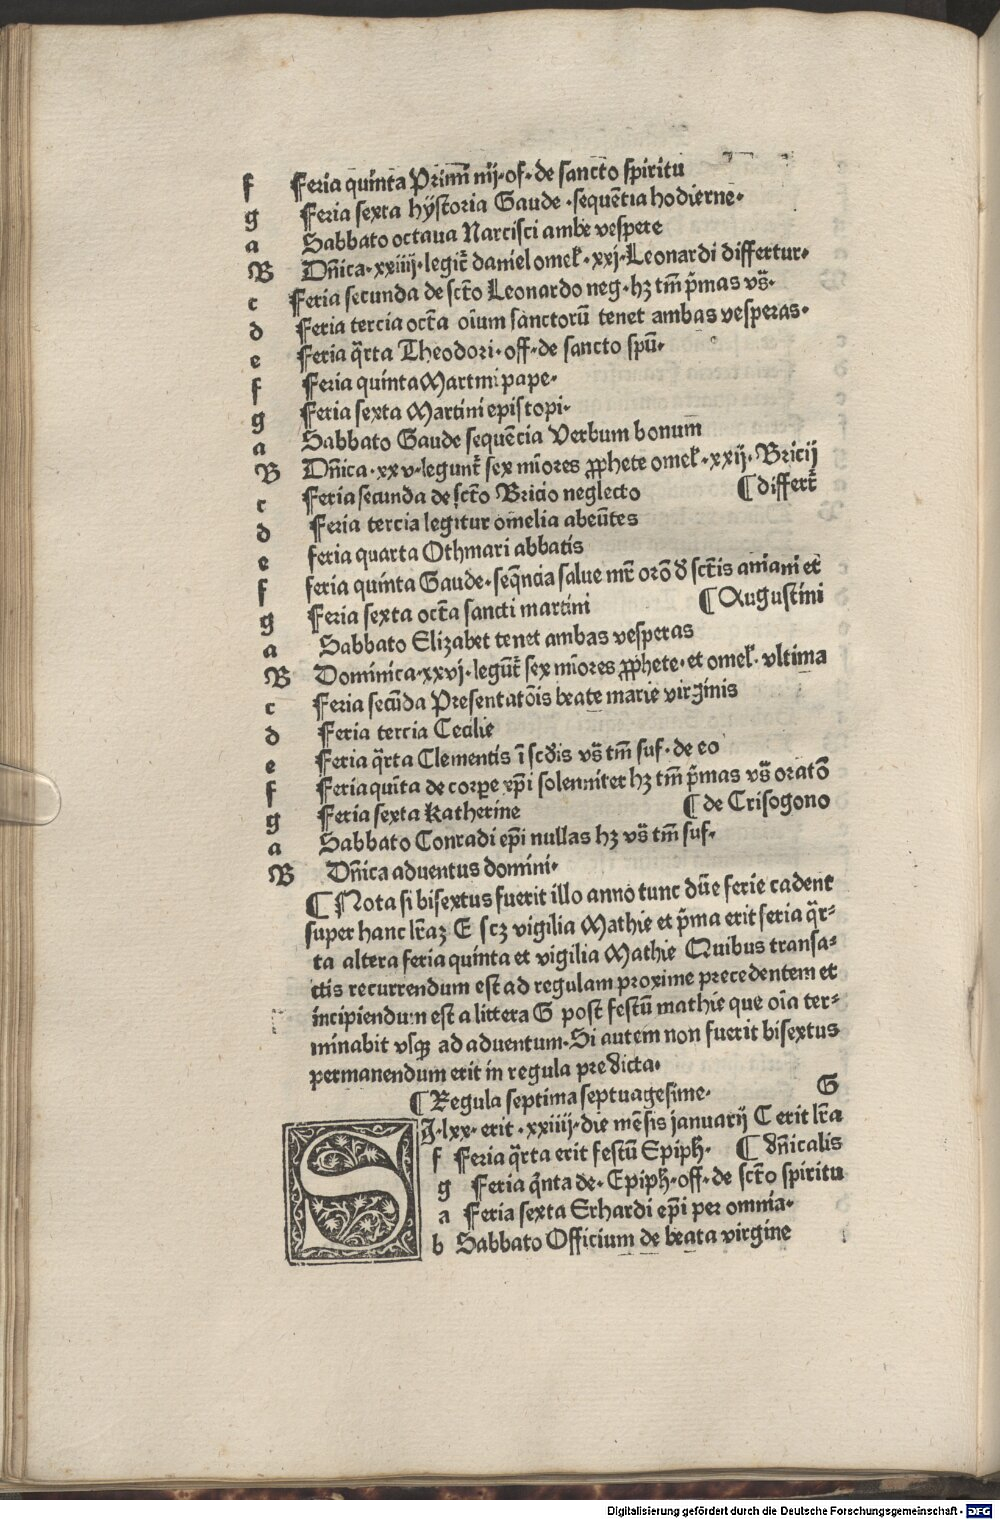 f Feria quinta Primi nij·of·de sancto spiritu
g Feria sexta hystoria Gaude·sequentia hodierne·
a Sabbato octaua Narcisci ambe vespere
B Dñica·xxiiij·legit̃ daniel omel̃·xxj·Leonardi differtur·
c Feria secunda de sct̃o Leonardo neg·hꝫ tm̃ p̃mas vs̃·
d Feria tercia oct̃a oĩum sanctorũ tenet ambas vesperas·
e Feria q̃rta Theodori·off·de sancto spũ·
f Feria quinta Martini pape·
g Feria sexta Martini epistopi·
a Sabbato Gaude sequẽcia Verbum bonum
B Dñica·xxv·legunt̃ sex mĩores ꝓphete omel̃·xxij·Bricij
c Feria secunda de sct̃o Bricio neglecto ¶differt̃
d Feria tercia legitur omelia abeũtes
e feria quarta Othmari abbatis
f feria quinta Gaude·seq̃ncia salue mr̃ orõ ð sct̃is aniani et
g Feria sexta oct̃a sancti martini ¶Augustini
a Sabbato Elizabet tenet ambas vesperas
B Dominica·xxvj·legũt̃ sex mĩores ꝓphete·et omel̃·vltima
c Feria secũda Presentatõis beate marie virginis
d Feria tercia Cecilie
e Feria q̃rta Clementis ĩ scðis vs̃ tm̃ suf·de eo
f Feria quĩta de corpe xp̃i solenniter hꝫ tm̃ p̃mas vs̃ oratõ
g Feria sexta Katherine ¶de Crisogono
a Sabbato Conradi ep̃i nullas hꝫ vs̃ tm̃ suf·
B Dñica aduentus domini·
¶Nota si bisextus fuerit illo anno tunc dũe ferie cadent
super hanc lr̃aꝫ E scꝫ vigilia Mathie et p̃ma erit feria q̃r⸗
ta altera feria quinta et vigilia Mathie Quibus transa⸗
ctis recurrendum est ad regulam proxime precedentem et
incipiendum est a littera G post festũ mathie que oĩa ter⸗
minabit vsqꝫ ad aduentum·Si autem non fuerit bisextus
permanendum erit in regula predicta·
¶Regula septima septuagesime· G
SJ·lxx·erit·xxiiij·die mẽsis januarij C erit lr̃a
f Feria q̃rta erit festũ Epiph̃· ¶dñicalis
g Feria q̃nta de·Epiph̃·off·de sct̃o spiritu
a Feria sexta Erhardi ep̃i per omnia·
b Sabbato Officium de beata virgine
Digitalisierung gefördert durch die Deutsche Forschungsgemeinschaft - DFG